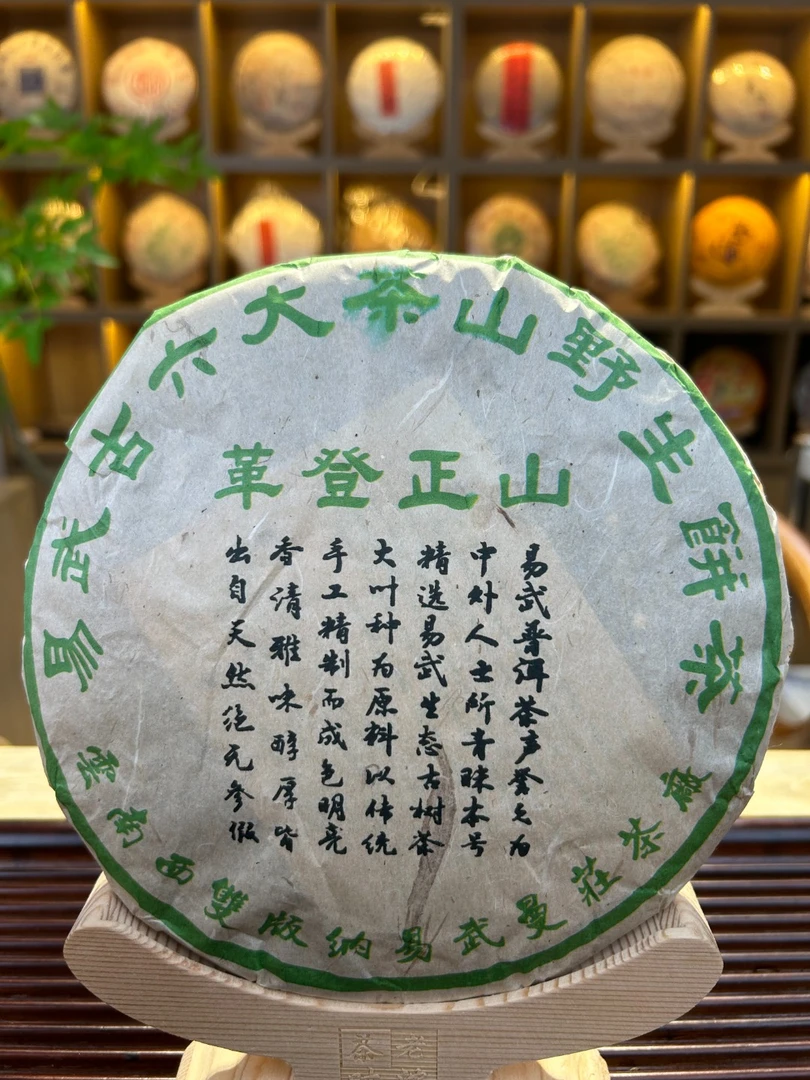 易武古六大茶山野生餅茶
革登正山
易武普洱茶声誉久为
中外人士所青睐本号
精选易武生态古树茶
大叶种为原料以传统
手工精制而成色明亮
香清雅味醇厚皆
出自天然绝无参假
雲南西雙版納易武曼莊茶廠